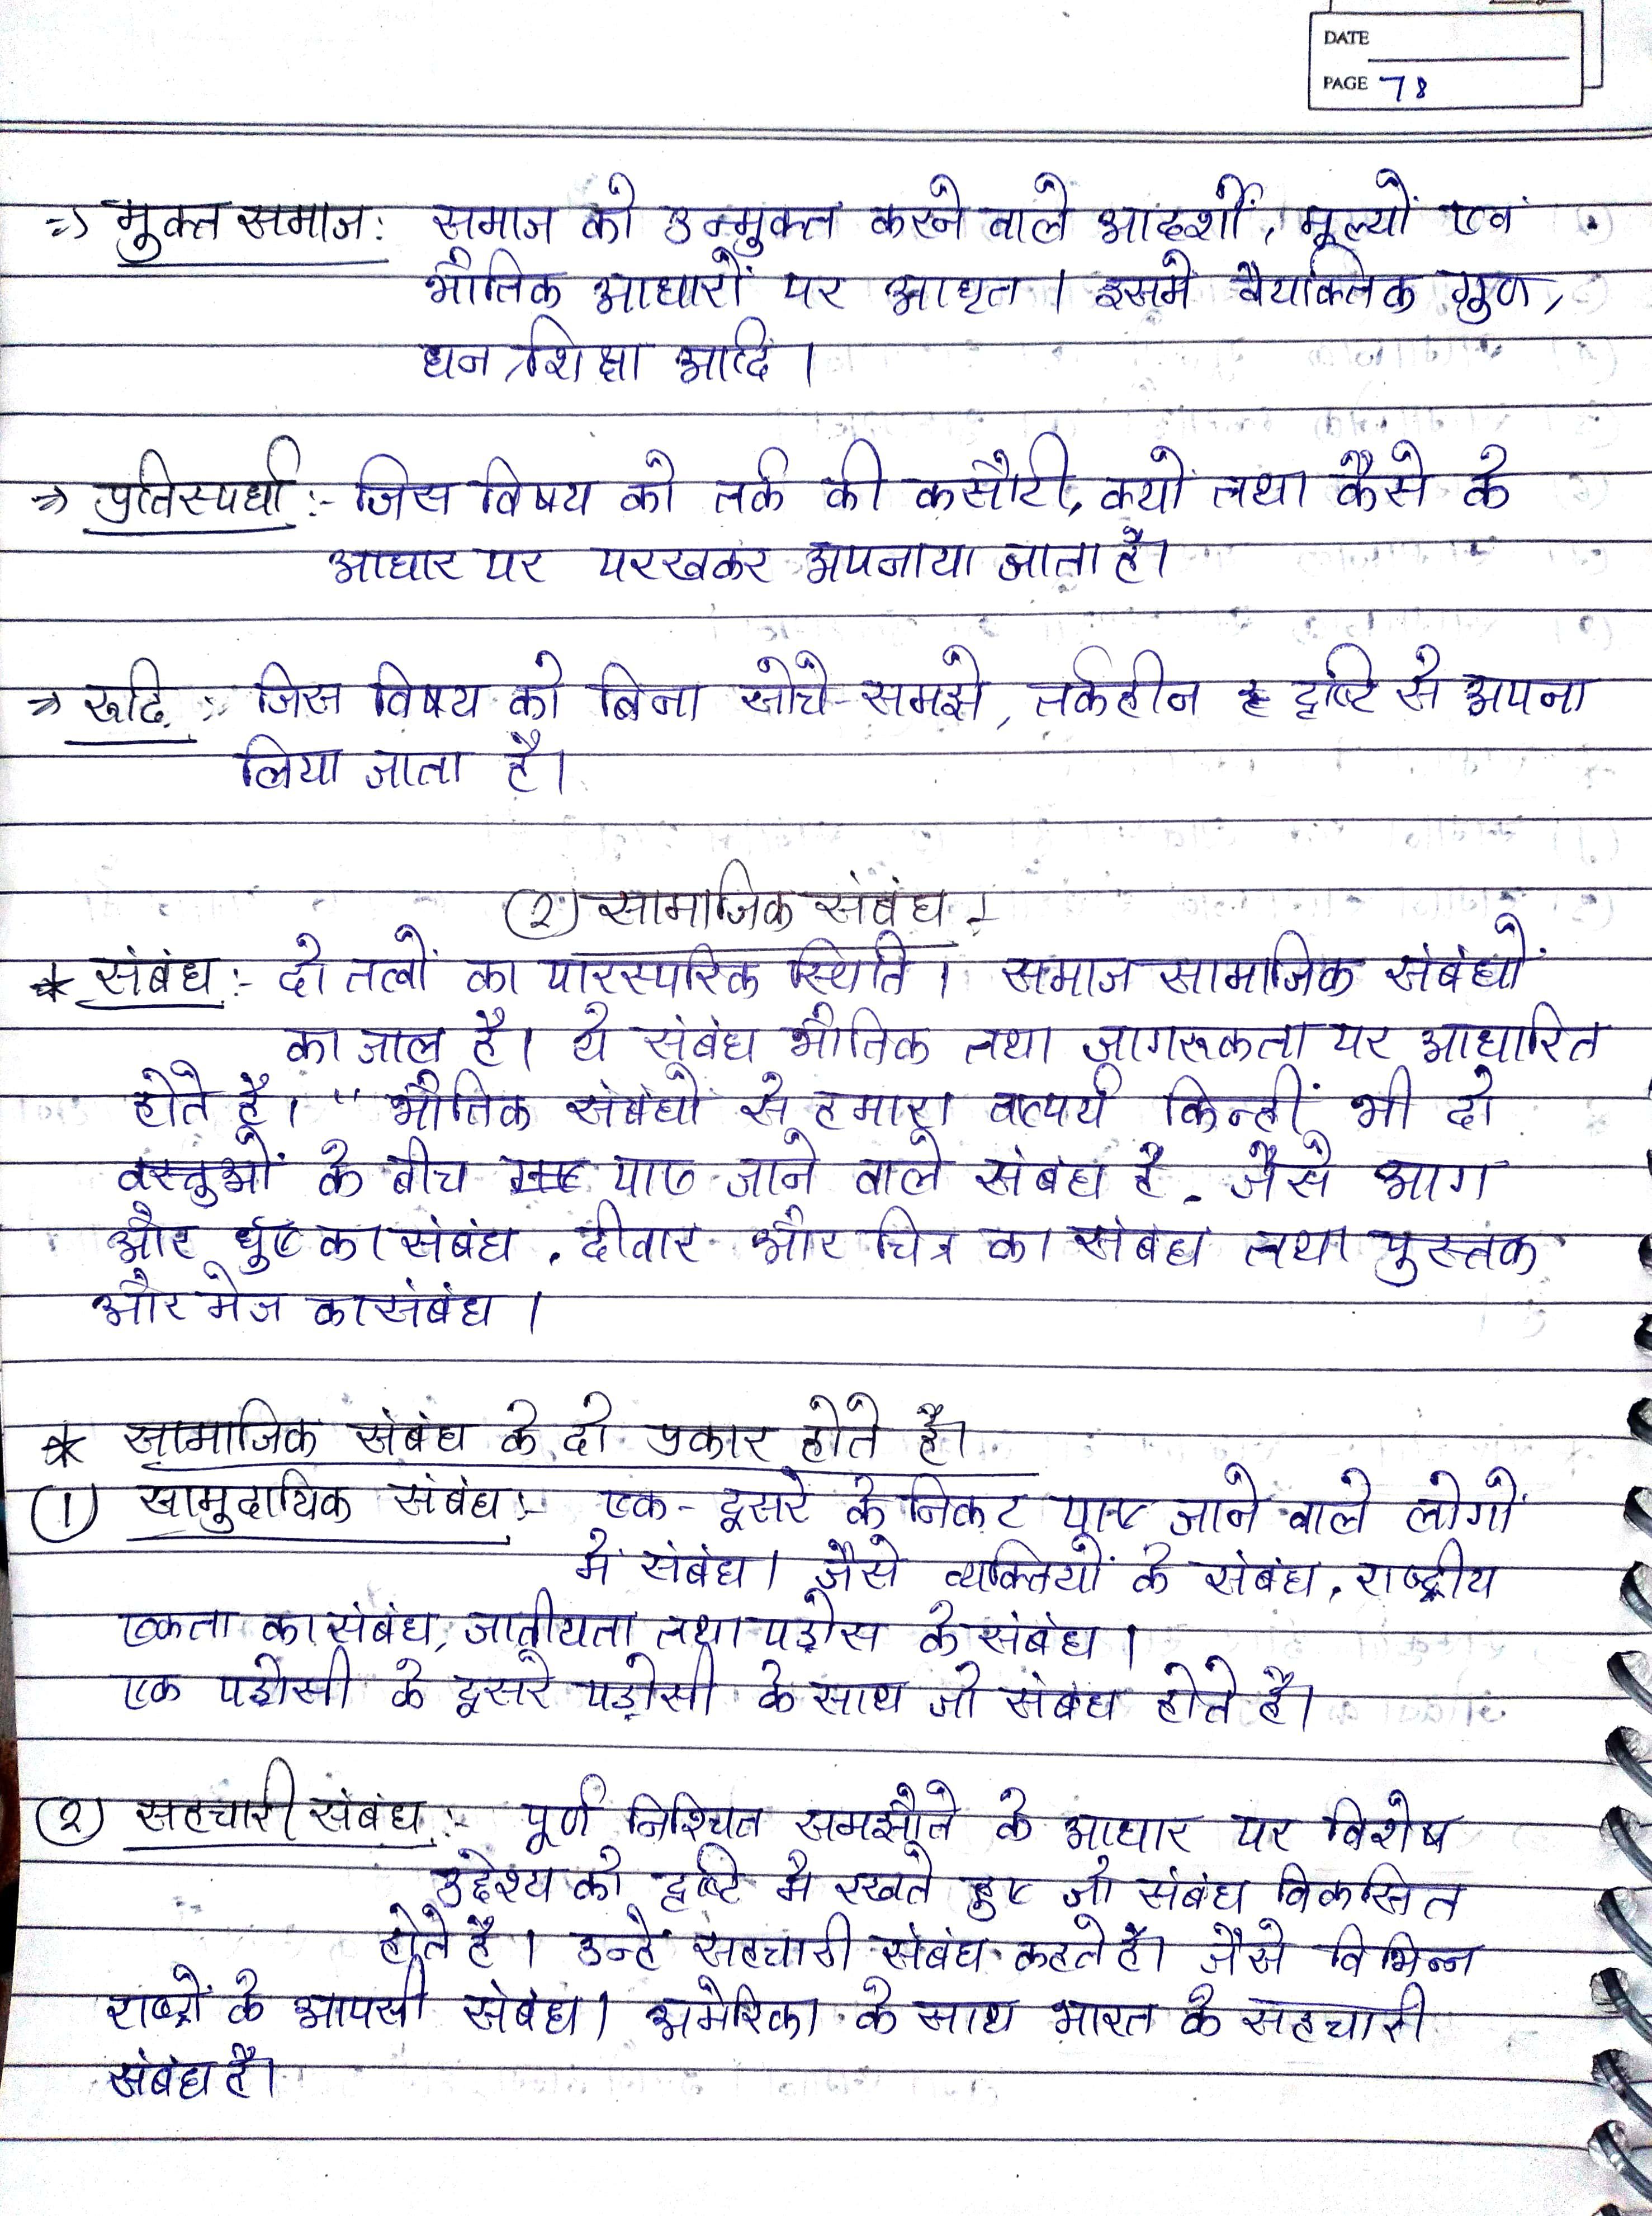 DATE
PAGE 78
=> मुक्त समाज: समाज को उन्मुक्त करने वाले आदर्शों, मूल्यों एवं
भौतिक आधारों पर आधृत । इसमें वैयक्तिक गुण,
धन, शिक्षा आदि ।
=> प्रतिस्पर्धा :- जिस विषय को तर्क की कसौटी, क्यों तथा कैसे के
आधार पर परखकर अपनाया जाता है।
=> रूढि :- जिस विषय को बिना सोचे-समझे, तर्कहीन दृष्टि से अपना
लिया जाता है।
(2) सामाजिक संबंध :-
* संबंध :- दो तत्वों का पारस्परिक स्थिति । समाज सामाजिक संबंधों
का जाल है। ये संबंध भौतिक तथा जागरूकता पर आधारित
होते है। " भौतिक संबंधों से हमारा तात्पर्य किन्हीं भी दो
वस्तुओं के बीच पाए जाने वाले संबंध है. जैसे आग
और धुंए का संबंध , दीवार और चित्र का संबंध तथा पुस्तक
और मेज का संबंध ।
* सामाजिक संबंध के दो प्रकार होते है।
(1) सामुदायिक संबंध :- एक-दूसरे के निकट पाए जाने वाले लोगों
में संबंध। जैसे व्यक्तियों के संबंध, राष्ट्रीय
एकता का संबंध, जातीयता तथा पड़ोस के संबंध ।
एक पड़ोसी के दूसरे पड़ोसी के साथ जो संबंध होते है।
(2) सहचारी संबंध :- पूर्ण निश्चित समझौते के आधार पर विशेष
उद्देश्य को दृष्टि मे रखते हुए जो संबंध विकसित
होते है । उन्हें सहचारी संबंध कहते है। जैसे विभिन्न
राष्ट्रों के आपसी संबंध। अमेरिका के साथ भारत के सहचारी
संबंध है।